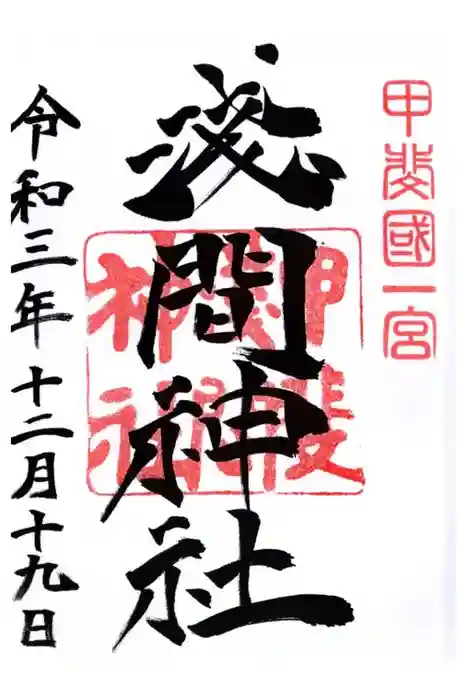 甲斐國一宮
浅間神社
令和三年十二月十九日